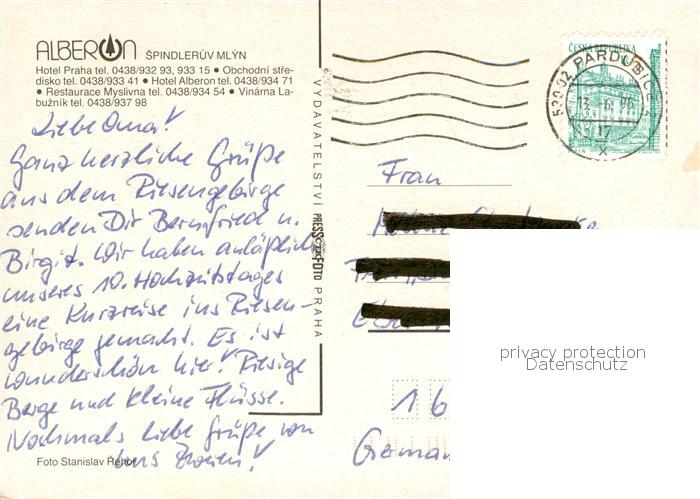 ALBERON ŠPINDLERŮV MLÝN
Hotel Praha tel. 0438/932 93, 933 15 • Obchodní stře-
disko tel. 0438/933 41 • Hotel Alberon tel. 0438/934 71
• Restaurace Myslivna tel. 0438/934 54 • Vinárna La-
bužník tel. 0438/937 98
Liebe Oma!
Ganz herzliche Grüße
aus dem Riesengebirge
senden Dir Bernfried u.
Birgit. Wir haben anläßlich
unseres 10. Hochzeitstages
eine Kurzreise ins Riesen-
gebirge gemacht. Es ist
wunderschön hier! Riesige
Berge und kleine Flüsse.
Nochmals liebe Grüße von
uns Zweien!
Foto Stanislav Řehoř
VYDAVATELSTVÍ PRESSFOTO PRAHA
ČESKÁ REPUBLIKA
53002 PARDUBICE 2
13.-6.96
17
x
Frau
16
German
privacy protection
Datenschutz